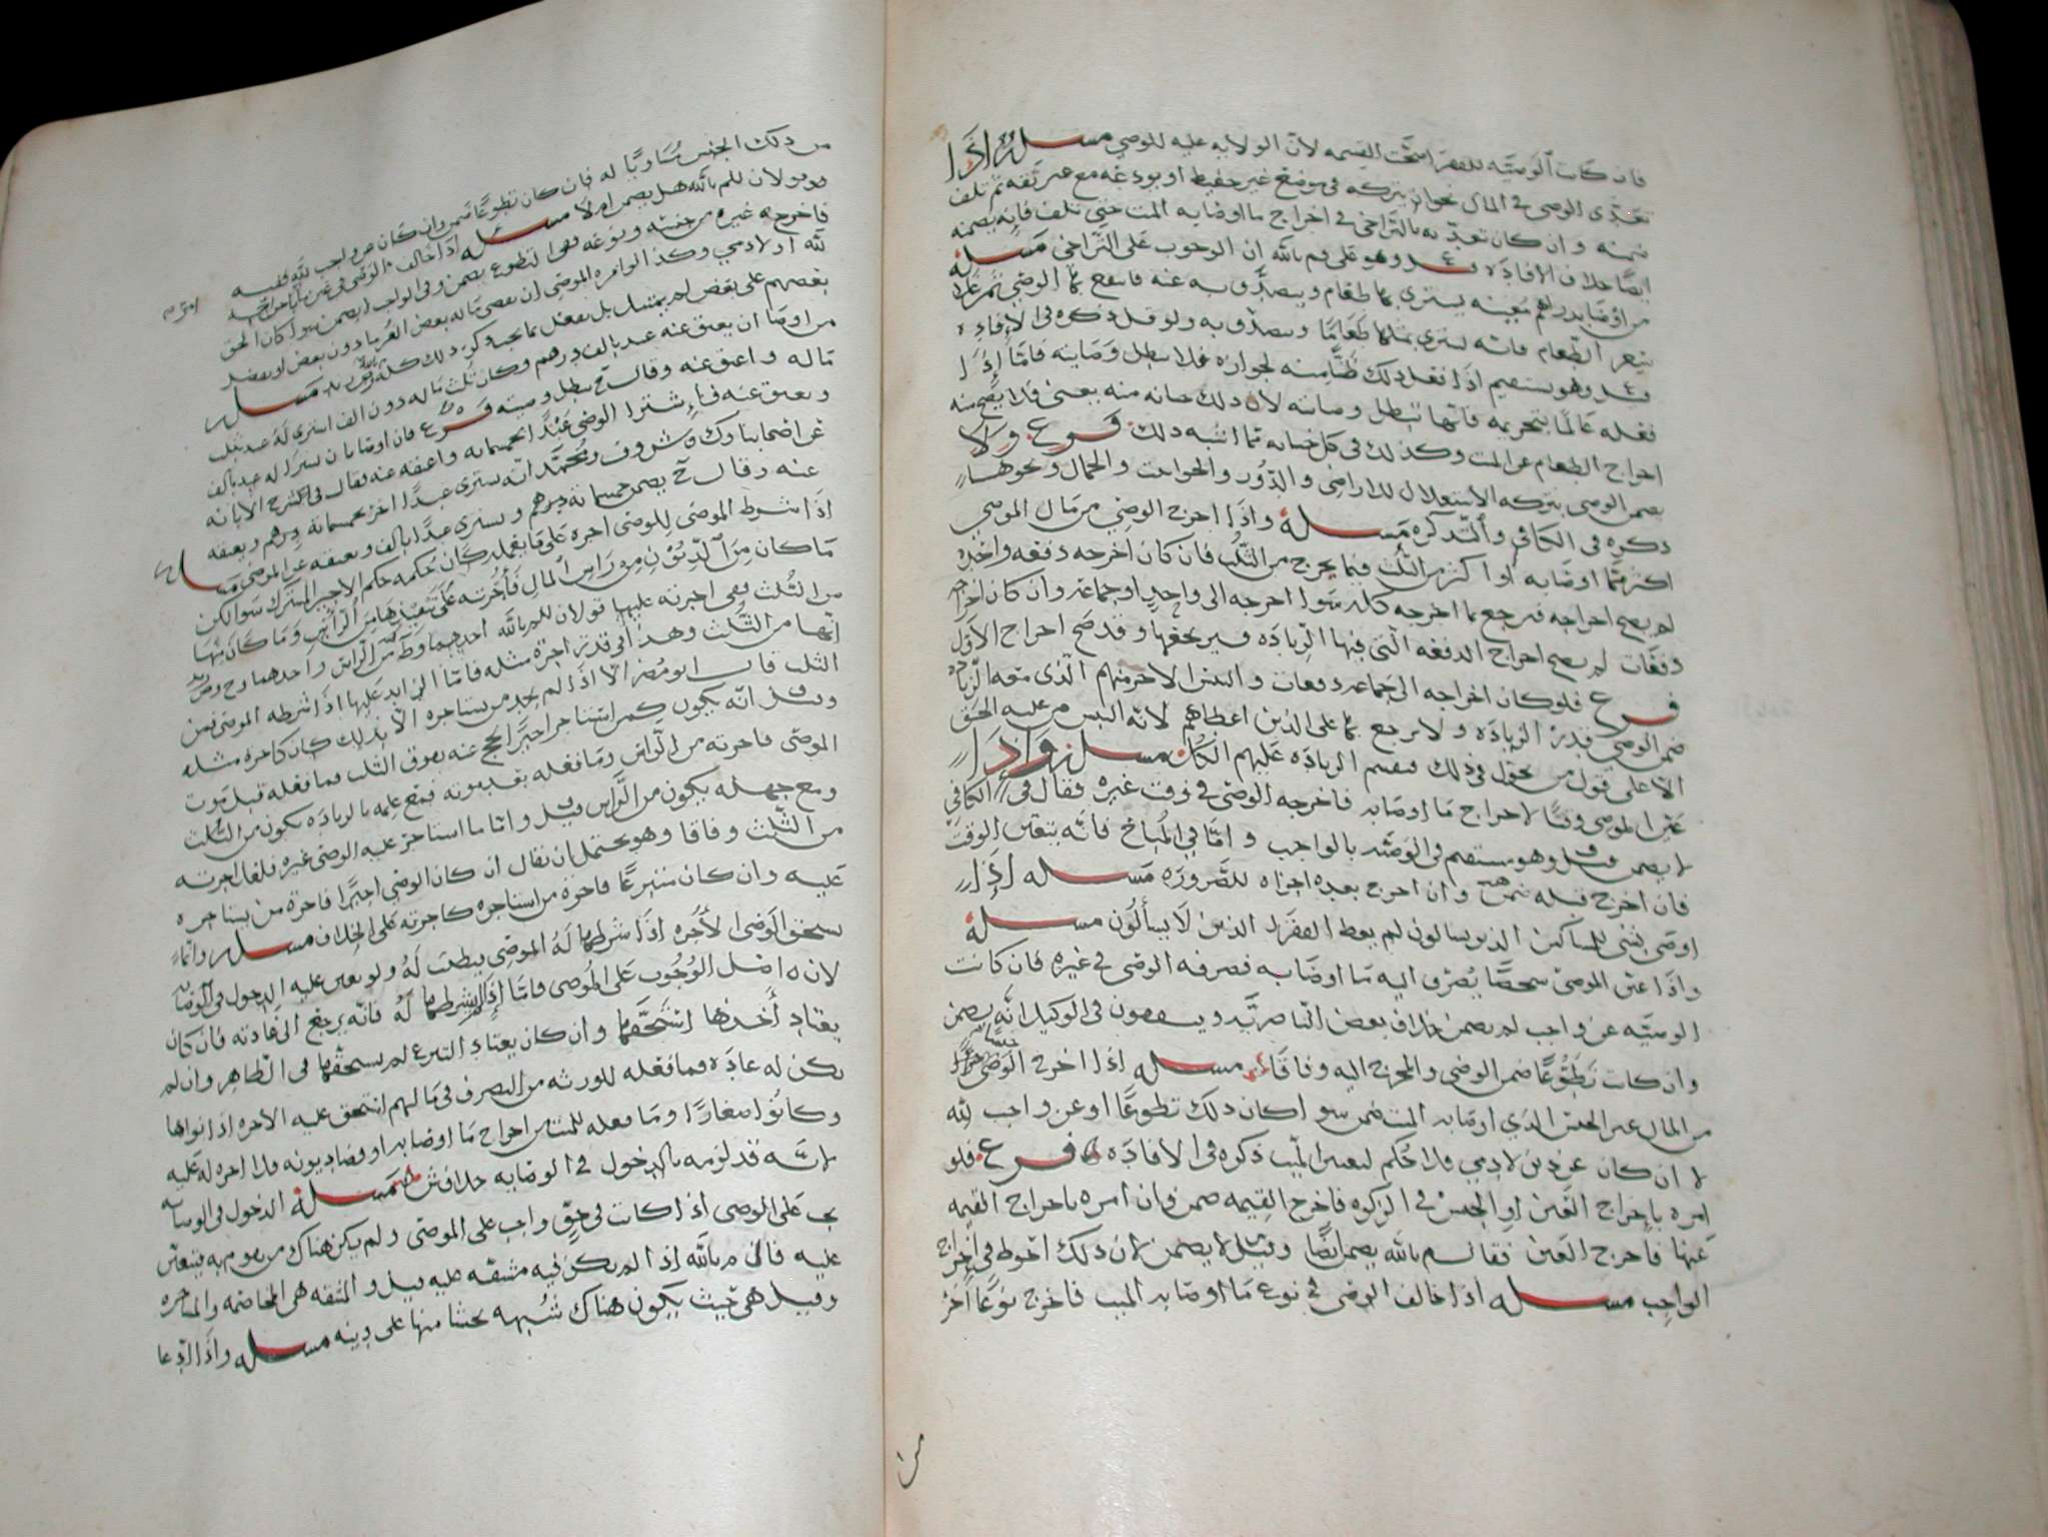 فان كانت الوصيه للفقراء صحت القسمه لان الولايه عليه للوصي مسله اذا
تعدى الوصي في المال نحو ان يتركه في موضع غير حفيظ او يودعه مع غير ثقه ثم تلف
ضمنه وان كان تعديه بالتراخي في اخراج ما اوصا به الميت حتى تلف فانه يضمنه
ايضا خلاف الافاده وهو على قول م بالله ان الوجوب على التراخي مسله
من اوصا بدراهم معينه يشترى بها طعام ويتصدق به عنه فانتفع بها الوصي ثم
بتلك الطعام فانه يشتري بمثلها طعاما ويتصدق به وقد ذكره في الافاده
قيل وهو يستقيم اذا فعل ذلك ظنا منه لجوازه فلا تبطل وصايته فاما اذا
فعله عالما بتحريمه فانها تبطل وصايته لان ذلك خيانه منه يعني فلا يصح منه
اخراج الطعام عن الميت وكذلك في كل خيانه مما اشبه ذلك فرع ولا
يضمن الوصي بتركه الاستغلال للاراضي والدور والحوانيت والجمال ونحوها
ذكره في الكافي والتذكره مسله واذا اخرج الوصي من مال الموصي
اكثر مما اوصا به او اكثر من الثلث فيما يخرج من الثلث فان كان اخرجه دفعه واحده
لم يصح اخراجه فيرجع بما اخرجه كله سوا اخرجه الى واحد او جماعه وان كان اخراجه
دفعات لم يصح اخراج الدفعه التي فيها الزياده فيرجع بها وقد صح اخراج الاول
فرع فلو كان اخراجه الى جماعه دفعات والتبس الاخر منهم الذي معه الزياده
ضمن الوصي قدر الزياده ولا يرجع بها على الذين اعطاهم لانه التبس من عليه الحق
الا على قول من يحول في ذلك فيقسم الزياده عليهم الكل مسله واذا
عين الموصي وقتا لاخراج ما اوصا به فاخرجه الوصي في وقت غيره فقال في الكافي
لا يضمن قيل وهو مستقيم في الوصيه بالواجب واما في المباح فانه يتعين الوقت
فان اخرج قبله ضمن وان اخرج بعده اجزاه للضروره مسله اذا
اوصى بشي للمساكين الذين يسالون لم يعط الفقرا الذين لا يسألون مسله
واذا عين الموصي شخصا يصرف اليه ما اوصا به فصرفه الوصي في غيره فان كانت
الوصيه عن واجب لم يضمن خلاف بعض الناصريه ويتفقون في الوكيل انه يضمن
وان كانت تطوعا ضمن الوصي والمخرج اليه وفاقا مسله اذا اخرج الوصي جنسا
من المال غير الجنس الذي اوصا به الميت ضمن سوا كان ذلك تطوعا او عن واجب لله
لا ان كان عن دين لادمي فلا حكم لتعيين الميت ذكره في الافاده فرع فلو
امره باخراج العين او الجنس في الزكوه فاخرج القيمه ضمن وان امره باخراج القيمه
عنها فاخرج العين فقال م بالله يضمن ايضا وقيل لا يضمن لان ذلك احوط في اخراج
الواجب مسله اذا خالف الوصي في نوع ما اوصا به الميت فاخرج نوعا اخر
من
من ذلك الجنس مساويا له فان كان تطوعا ضمن وان كان عن واجب لله ففيه
قولان للم بالله هل يضمن ام لا مسله اذا خالف الوصي
فاخرجه غيره من جنسه ونوعه ففي التطوع يضمن وفي الواجب لا يضمن سوا كان الحق
لله او لادمي وكذا لو امره الموصي ان يقضي ماله بعض الغرما دون بعض او يفضل
بعضهم على بعض لم يمتثل بل يفعل ما يجب ذكر ذلك كله مسله
من اوصا ان يعتق عنه عبد بالف درهم وكان ثلث ماله دون الف اشتري له عبد بثلث
ماله واعتق عنه وقال ح تبطل وصيته فرع فان اوصا بان يشترا له عبد بالف
ويعتق عنه فاشترا الوصي عبدا بخمسمائه واعتقه عنه فقال في الشرح الابانه
عن اصحابنا وك وش وف ومحمد انه يشتري عبدا اخر بخمسمائه درهم ويعتقه
عنه وقال ح يضمن خمسمائه درهم ويشتري عبدا بالف ويعتقه عن الموصي مسله
اذا شرط الموصي للوصي اجره على ما يفعله كان حكمه حكم الاجير المشترك سوا لكن
ما كان من الديون من راس المال فأجرته على تنفيذها من الراس وما كان منها
من الثلث ففي اجرته عليها قولان للم بالله احدهما وط من الراس واحدهما وح وص
انها من الثلث وهذا في قدر اجرة مثله فاما الزايد عليها اذا شرطه الموصي فمن
الثلث قال ابو مضر الا اذا لم يجد من يستاجره الا بذلك كان كاجرة مثله
وقيل انه يكون كمن استاجر اجيرا لحج عنه بفوق الثلث فما فعله قبل موت
الموصي فاجرته من الراس وما فعله بعد موته فمع علمه بالزياده يكون من الثلث
ومع جهله يكون من الراس قيل واما ما استاجر عليه الوصي غيره فلعل اجرته
من الثلث وفاقا وهو يحتمل ان يقال ان كان الوصي اجيرا فاجرة من يستاجره
عليه وان كان متبرعا فاجرة من استاجره كاجرته على الخلاف مسله وانما
يستحق الوصي الأجره اذا شرطها له الموصي بطلت له ولو تعين عليه الدخول في الوصايه
لان اصل الوجوب على الموصي فاما اذا لم يشرطها له فانه يرجع الى عادته فان كان
يعتاد أخذها استحقها وان كان يعتاد التبرع لم يستحقها في الظاهر وان لم
يكن له عاده فما فعله للورثه من التصرف في مالهم استحق عليه الاجره اذا نواها
وكانوا صغارا وما فعله للميت من اخراج ما اوصا به او قضا ديونه فلا اجره له عليه
لانه قد لزمه بالدخول في الوصايه خلاف ش مسله الدخول في الوصايه
يجب على الوصي اذا كانت في حق واجب على الموصي ولم يكن هناك من يقوم به فيتعين
عليه قال م بالله اذا لم يكن فيه مشقه عليه قيل والمشقه هي المخاصمه والمشاجره
وقيل هي حيث يكون هناك شبهه يخشا منها على دينه مسله واذا ادعا